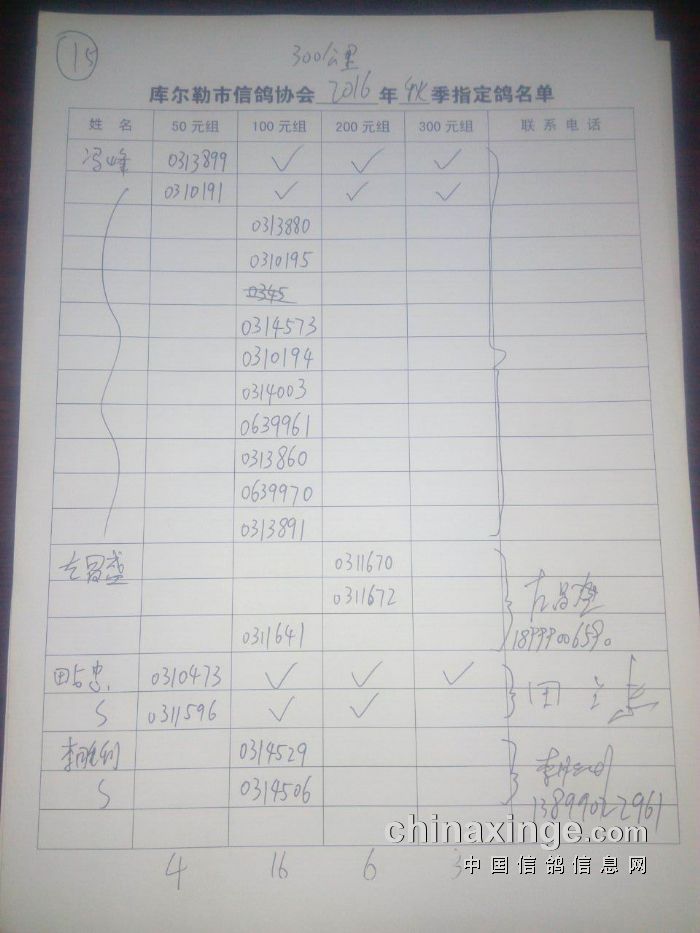 15
300公里
库尔勒市信鸽协会 2016 年 秋 季指定鸽名单
姓 名 50元组 100元组 200元组 300元组 联系电话
冯峰 0313899 ✓ ✓ ✓
0310191 ✓ ✓ ✓
0313880
0310195
0345
0314573
0310194
0314003
0639961
0313860
0639970
0313891
0311670
0311672
0311641
田占忠 0310473 ✓ ✓ ✓
0311596 ✓ ✓
0314529
0314506
13899022961
4 16 6 3
chinaxinge.com
中国信鸽信息网